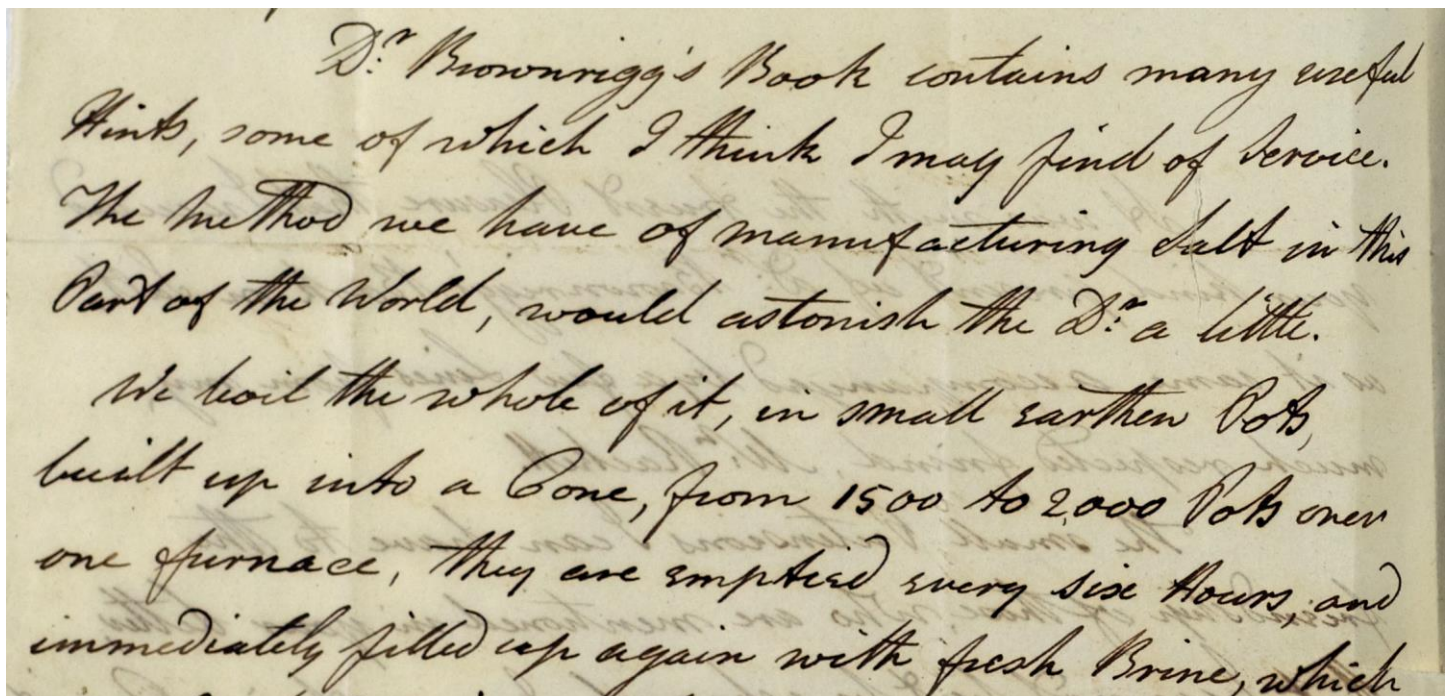 Dr. Brownrigg's Book contains many useful
Hints, some of which I think I may find of Service.
The Method we have of manufacturing Salt in this
Part of the World, would astonish the Dr. a little.
We boil the whole of it, in small earthen Pots,
built up into a Cone, from 1500 to 2000 Pots over
one furnace, they are emptied every six Hours, and
immediately filled up again with fresh Brine, which